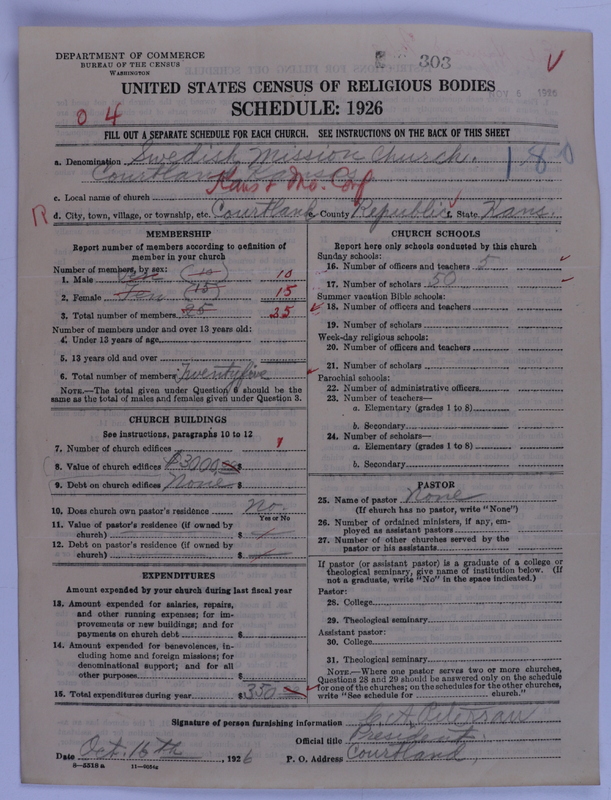 DEPARTMENT OF COMMERCE
BUREAU OF THE CENSUS
WASHINGTON
303
NOV 6 1926
UNITED STATES CENSUS OF RELIGIOUS BODIES
SCHEDULE: 1926
0 4
FILL OUT A SEPARATE SCHEDULE FOR EACH CHURCH. SEE INSTRUCTIONS ON THE BACK OF THIS SHEET
a. Denomination Swedish Mission Church.
Courtland Kansas
180
Kans & Mo. Conf
c. Local name of church
R d. City, town, village, or township, etc. Courtland e. County Republic f. State Kans.
MEMBERSHIP
Report number of members according to definition of
member in your church
Number of members, by sex:
1. Male Ten (10) 10
2. Female (15) 15
3. Total number of members 25 25
Number of members under and over 13 years old:
4. Under 13 years of age
5. 13 years old and over
6. Total number of members Twentyfive
NOTE.—The total given under Question 6 should be the
same as the total of males and females given under Question 3.
CHURCH BUILDINGS
See instructions, paragraphs 10 to 12
7. Number of church edifices 1
8. Value of church edifices $3000 $
9. Debt on church edifices None $
10. Does church own pastor's residence no.
Yes or No
11. Value of pastor's residence (if owned by
church) $
12. Debt on pastor's residence (if owned by
church) $
EXPENDITURES
Amount expended by your church during last fiscal year
13. Amount expended for salaries, repairs,
and other running expenses; for im-
provements or new buildings; and for
payments on church debt $
14. Amount expended for benevolences, in-
cluding home and foreign missions; for
denominational support; and for all
other purposes $
15. Total expenditures during year $350
CHURCH SCHOOLS
Report here only schools conducted by this church
Sunday schools:
16. Number of officers and teachers 5
17. Number of scholars 50
Summer vacation Bible schools:
18. Number of officers and teachers
19. Number of scholars
Week-day religious schools:
20. Number of officers and teachers
21. Number of scholars
Parochial schools:
22. Number of administrative officers
23. Number of teachers—
a. Elementary (grades 1 to 8)
b. Secondary
24. Number of scholars—
a. Elementary (grades 1 to 8)
b. Secondary
PASTOR
25. Name of pastor None
(If church has no pastor, write "None")
26. Number of ordained ministers, if any, em-
ployed as assistant pastors
27. Number of other churches served by the
pastor or his assistants
If pastor (or assistant pastor) is a graduate of a college or
theological seminary, give name of institution below. (If
not a graduate, write "No" in the space indicated.)
Pastor:
28. College
29. Theological seminary
Assistant pastor:
30. College
31. Theological seminary
NOTE.—Where one pastor serves two or more churches,
Questions 28 and 29 should be answered only on the schedule
for one of the churches; on the schedules for the other churches,
write "See schedule for church."
Signature of person furnishing information
Official title President
Date Oct. 16th, 1926 P. O. Address Courtland
8—5318a 11—9314